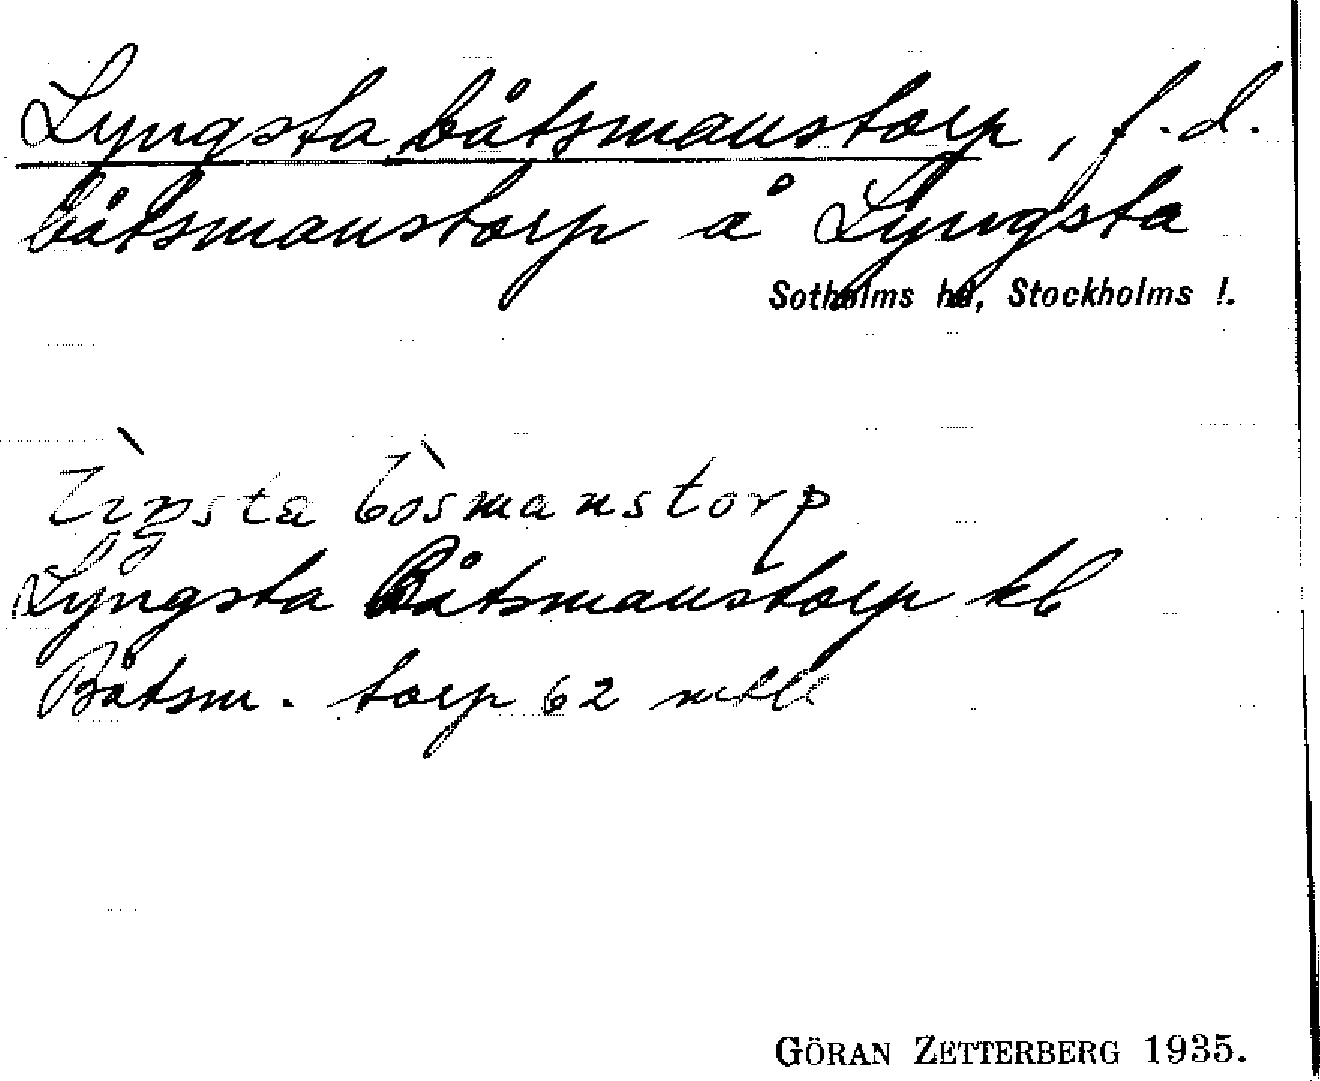 Lyngsta båtsmanstorp, f.d.
båtsmanstorp å Lyngsta
Sotholms hd, Stockholms l.
bòsmanstorp
Lyngsta Båtsmanstorp kb
Båtsm. torp 62 mtll
GÖRAN ZETTERBERG 1935.